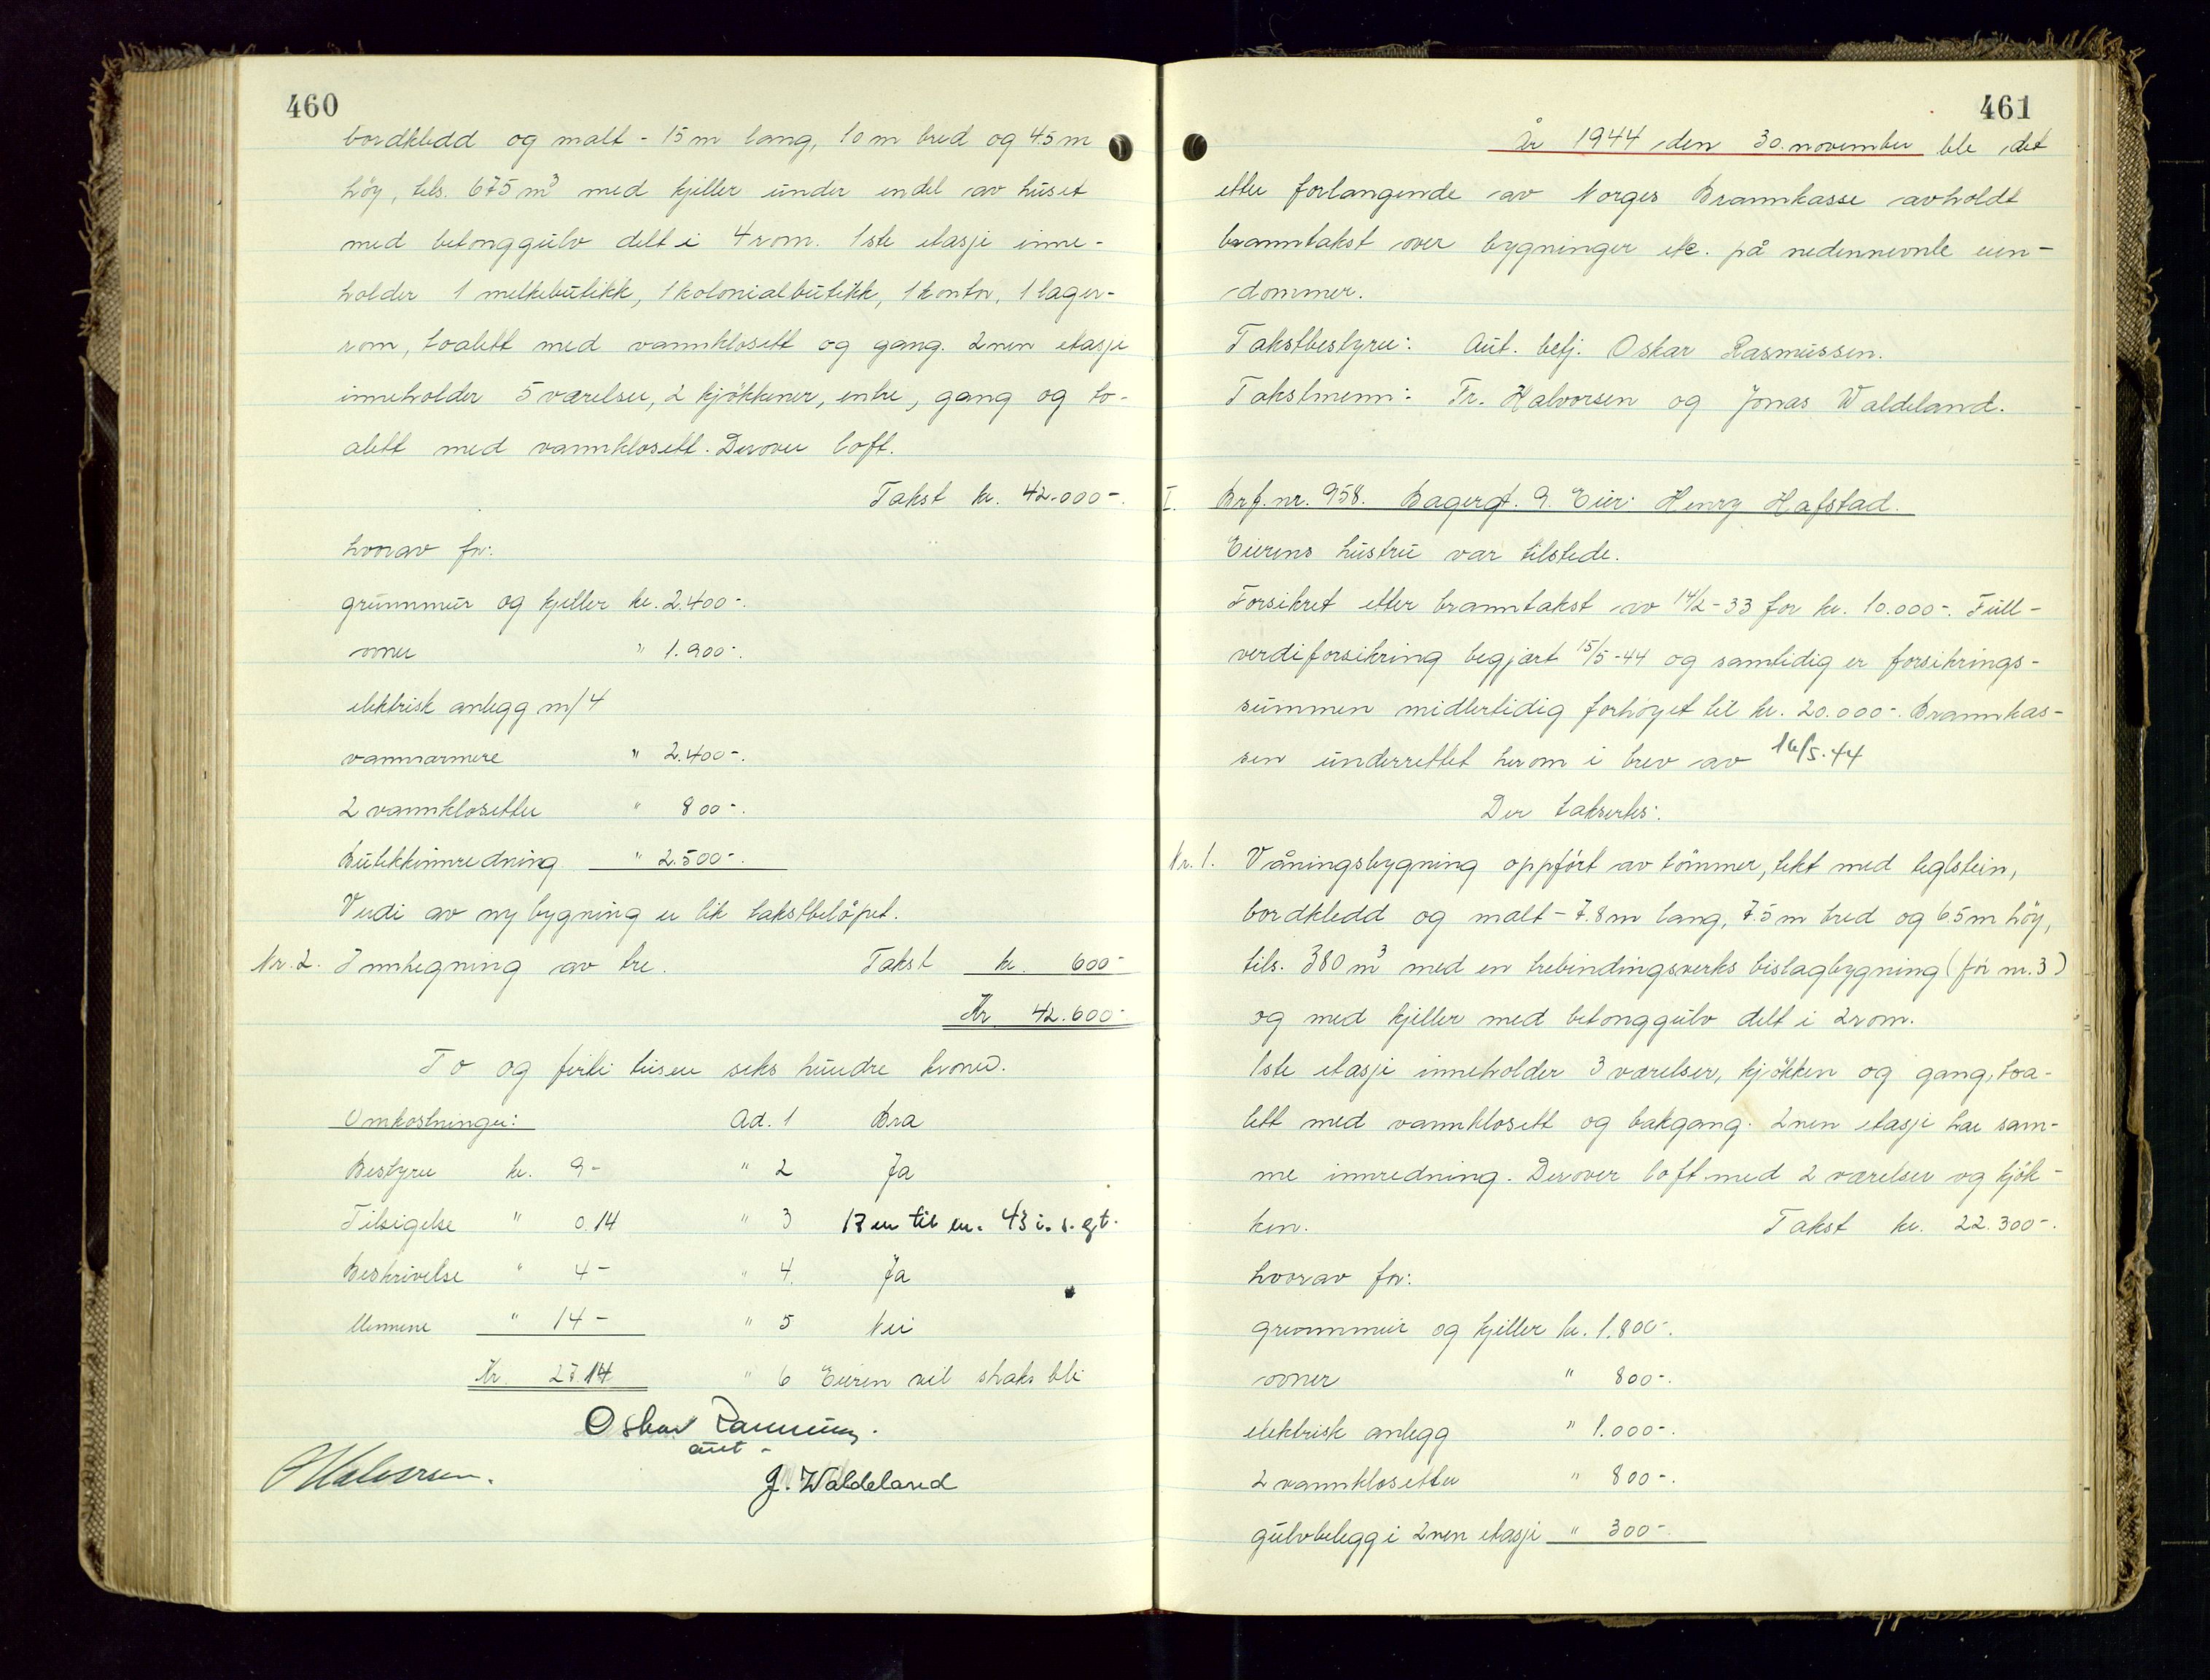 460
bordkledd og malt - 15 m lang, 10 m bred og 4.5 m
höy, tils. 675 m³ med kjeller under endel av huset
med betonggulv delt i 4 rom. 1ste etasje inne-
holder 1 melkebutikk, 1 kolonialbutikk, 1 kontor, 1 lager-
rom, toalett med vannklosett og gang. 2nen etasje
inneholder 5 værelser, 2 kjökkener, entre, gang og to-
alett med vannklosett. Derover loft.
Takst kr. 42.000-.
hvorav for:
grunnmur og kjeller kr. 2.400-.
ovner " 1.900-.
elektrisk anlegg m/4
vannvarmere " 2.400-.
2 vannklosetter " 800-.
Butikkinnredning " 2.500-.
Verdi av ny bygning er lik takstbelöpet.
Nr. 2. Innhegning av tre. Takst kr. 600-
Kr. 42.600-
To og firti tusen seks hundre kroner.
Omkostninger: Ad. 1 Bra
Bestyrer kr. 9- " 2 Ja
Tilsigelse " 0.14 " 3 13 en til en. 43 i. s. gt.
Beskrivelse " 4- " 4. Ja
Mennene " 14- " 5 Nei
Kr. 27.14 " 6 Eieren vil straks bli
Oskar Rasmussen.
aut -
Halvorsen.
J. Waldeland
461
År 1944 den 30. november ble det
etter forlangende av Norges Brannkasse avholdt
branntakst over bygninger etc. på nedennevnte eien-
dommer.
Takstbestyrer: Aut. betj. Oskar Rasmussen.
Takstmenn: Tr. Halvorsen og Jonas Waldeland.
I. Brf. nr. 958. Bagergt. 9. Eier: Henry Hafstad.
Eierens hustru var tilstede.
Forsikret etter branntakst av 14/2-33 for kr. 10.000-. Full-
verdiforsikring begjært 15/5-44 og samtidig er forsikrings-
summen midlertidig forhöyet til kr. 20.000-. Brannkas-
sen underrettet herom i brev av 16/5.44
Der takseres:
Nr. 1. Våningsbygning oppfört av tömmer, tekt med teglstein,
bordkledd og malt - 7.8 m lang, 7.5 m bred og 6.5 m höy,
tils. 380 m³ med en trebindingsverks bislagbygning (för nr. 3)
og med kjeller med betonggulv delt i 2 rom.
1ste etasje inneholder 3 værelser, kjökken og gang, toa-
lett med vannklosett og bakgang. 2nen etasje har sam-
me innredning. Derover loft med 2 værelser og kjök-
ken. Takst kr. 22.300-.
hvorav for:
grunnmur og kjeller kr. 1.800-.
ovner " 800-.
elektrisk anlegg " 1.000-.
2 vannklosetter " 800-.
gulvbelegg i 2nen etasje " 300-.